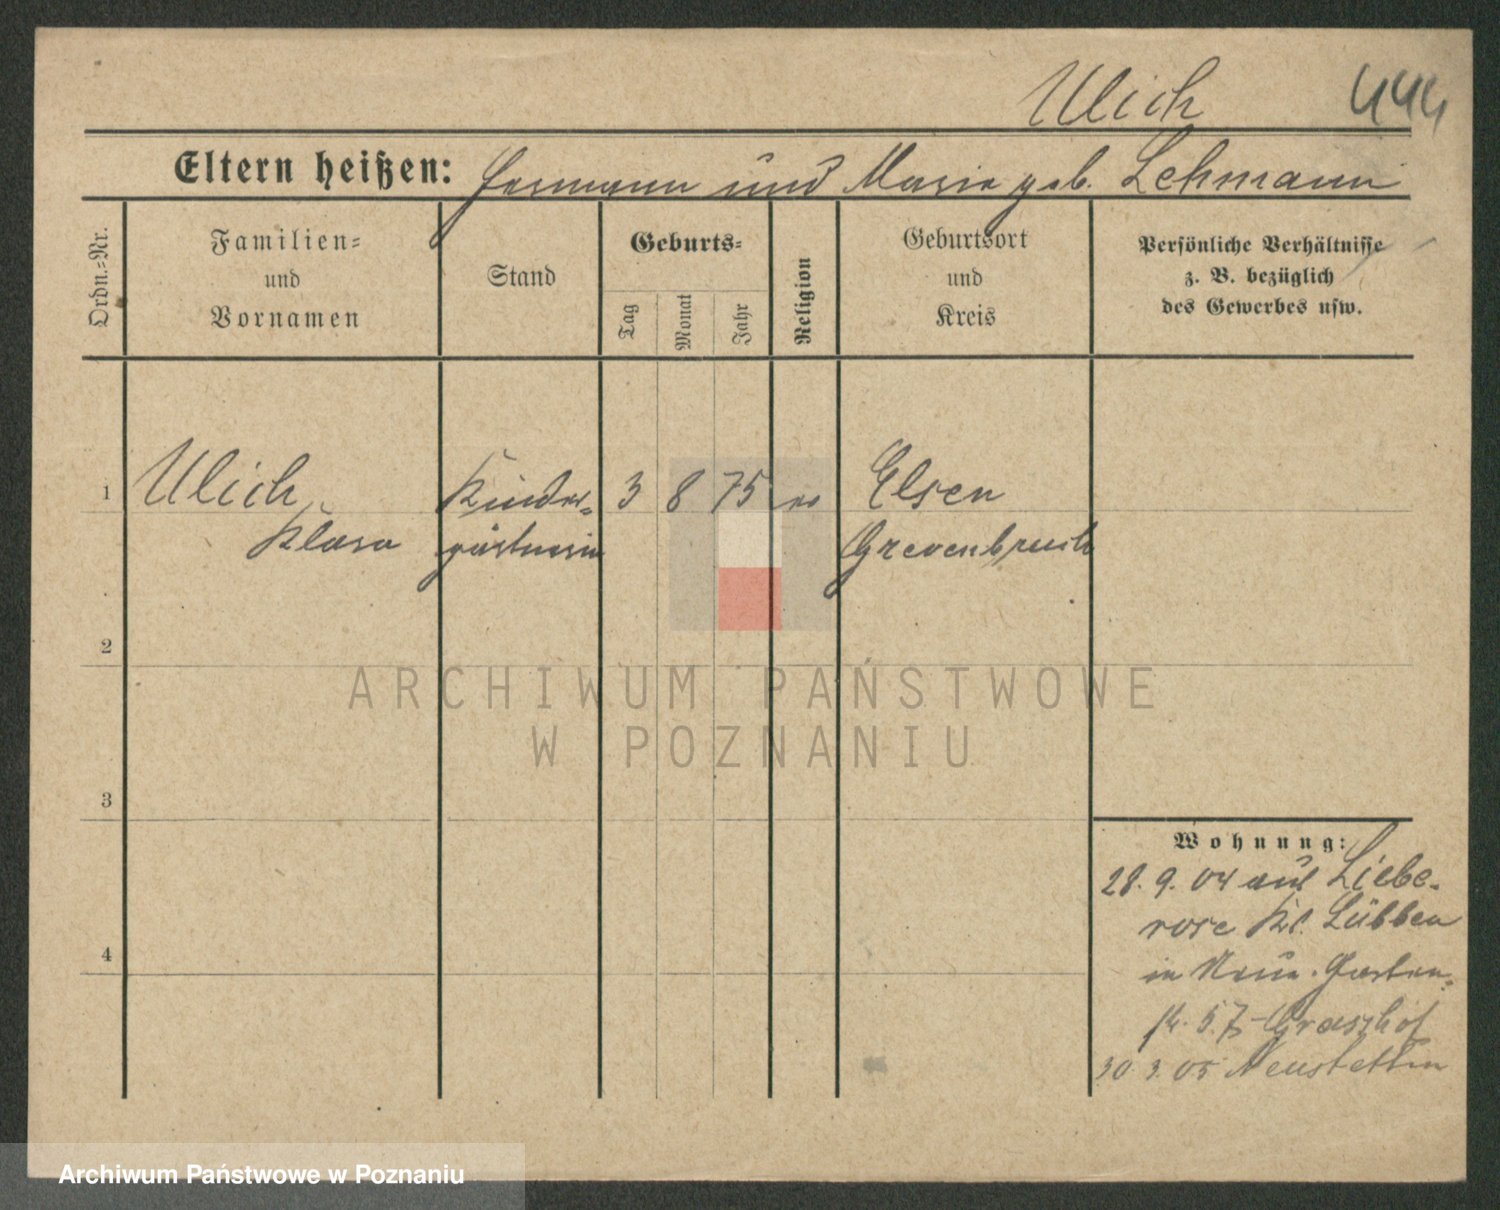 Ulich 444
Eltern heißen: Hermann und Marie geb. Lehmann
Ordn.-Nr.
Familien-
und
Vornamen
Stand
Geburts-
Tag
Monat
Jahr
Religion
Geburtsort
und
Kreis
Persönliche Verhältnisse
z. B. bezüglich
des Gewerbes usw.
1 Ulich Kinder- 3 8 75 ev Elsen
Klara gärtnerin Grevenbruch
2
ARCHIWUM PAŃSTWOWE
W POZNANIU
3
Wohnung:
28. 9. 04 aus Liebe-
rose Kr. Lübben
4
in Neue. Garten-
str. 57
30 3. 05 Neustettin
Archiwum Państwowe w Poznaniu